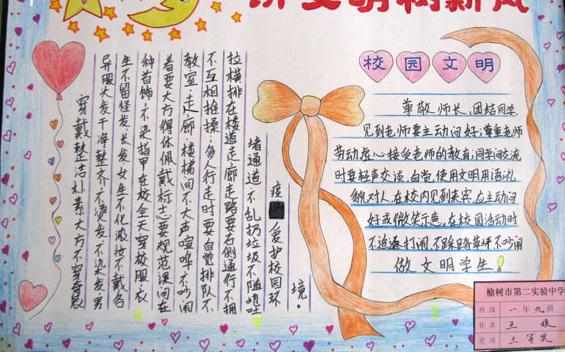 讲文明树新风
校园文明
尊敬师长,团结同学
见到老师要主动问好,尊重老师
劳动,虚心接受老师的教育,同学间交流
时要轻声交谈,自觉使用文明用语,礼
貌对人,在校内见到来宾,应主动问
好或微笑示意,在校园活动时
不追逐打闹,不踩踏草坪不吵闹
做文明学生!
穿戴整洁朴素大方不穿奇装
异服头发干净整齐,不烫发,不染发,男
生不留怪发、长发,女生不化浓妆不戴各
种首饰,不染指甲,在校全天穿校服,衣
着要大方得体,佩戴标志要规范,课间在
教室,走廊,楼梯间不大声喧哗,不吵闹
不互相推搡,多人行走时,要自觉排队,不
拉横排,在楼道走廊走路要右侧通行不拥
堵通道,不乱扔垃圾,不随地吐
痰 爱护校园环
境.
榆树市第二实验中学
班级 一年九班
姓名 王